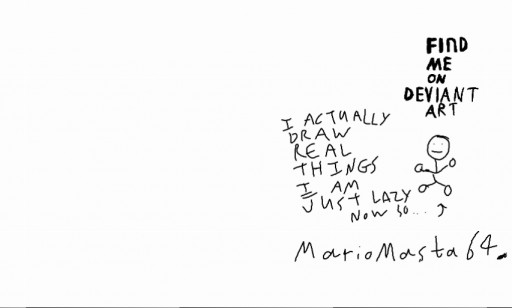 FIND
ME
ON
DEVIANT
ART
I ACTUALLY
DRAW
REAL
THINGS
I AM
JUST LAZY
NOW SO...
MarioMasta64.